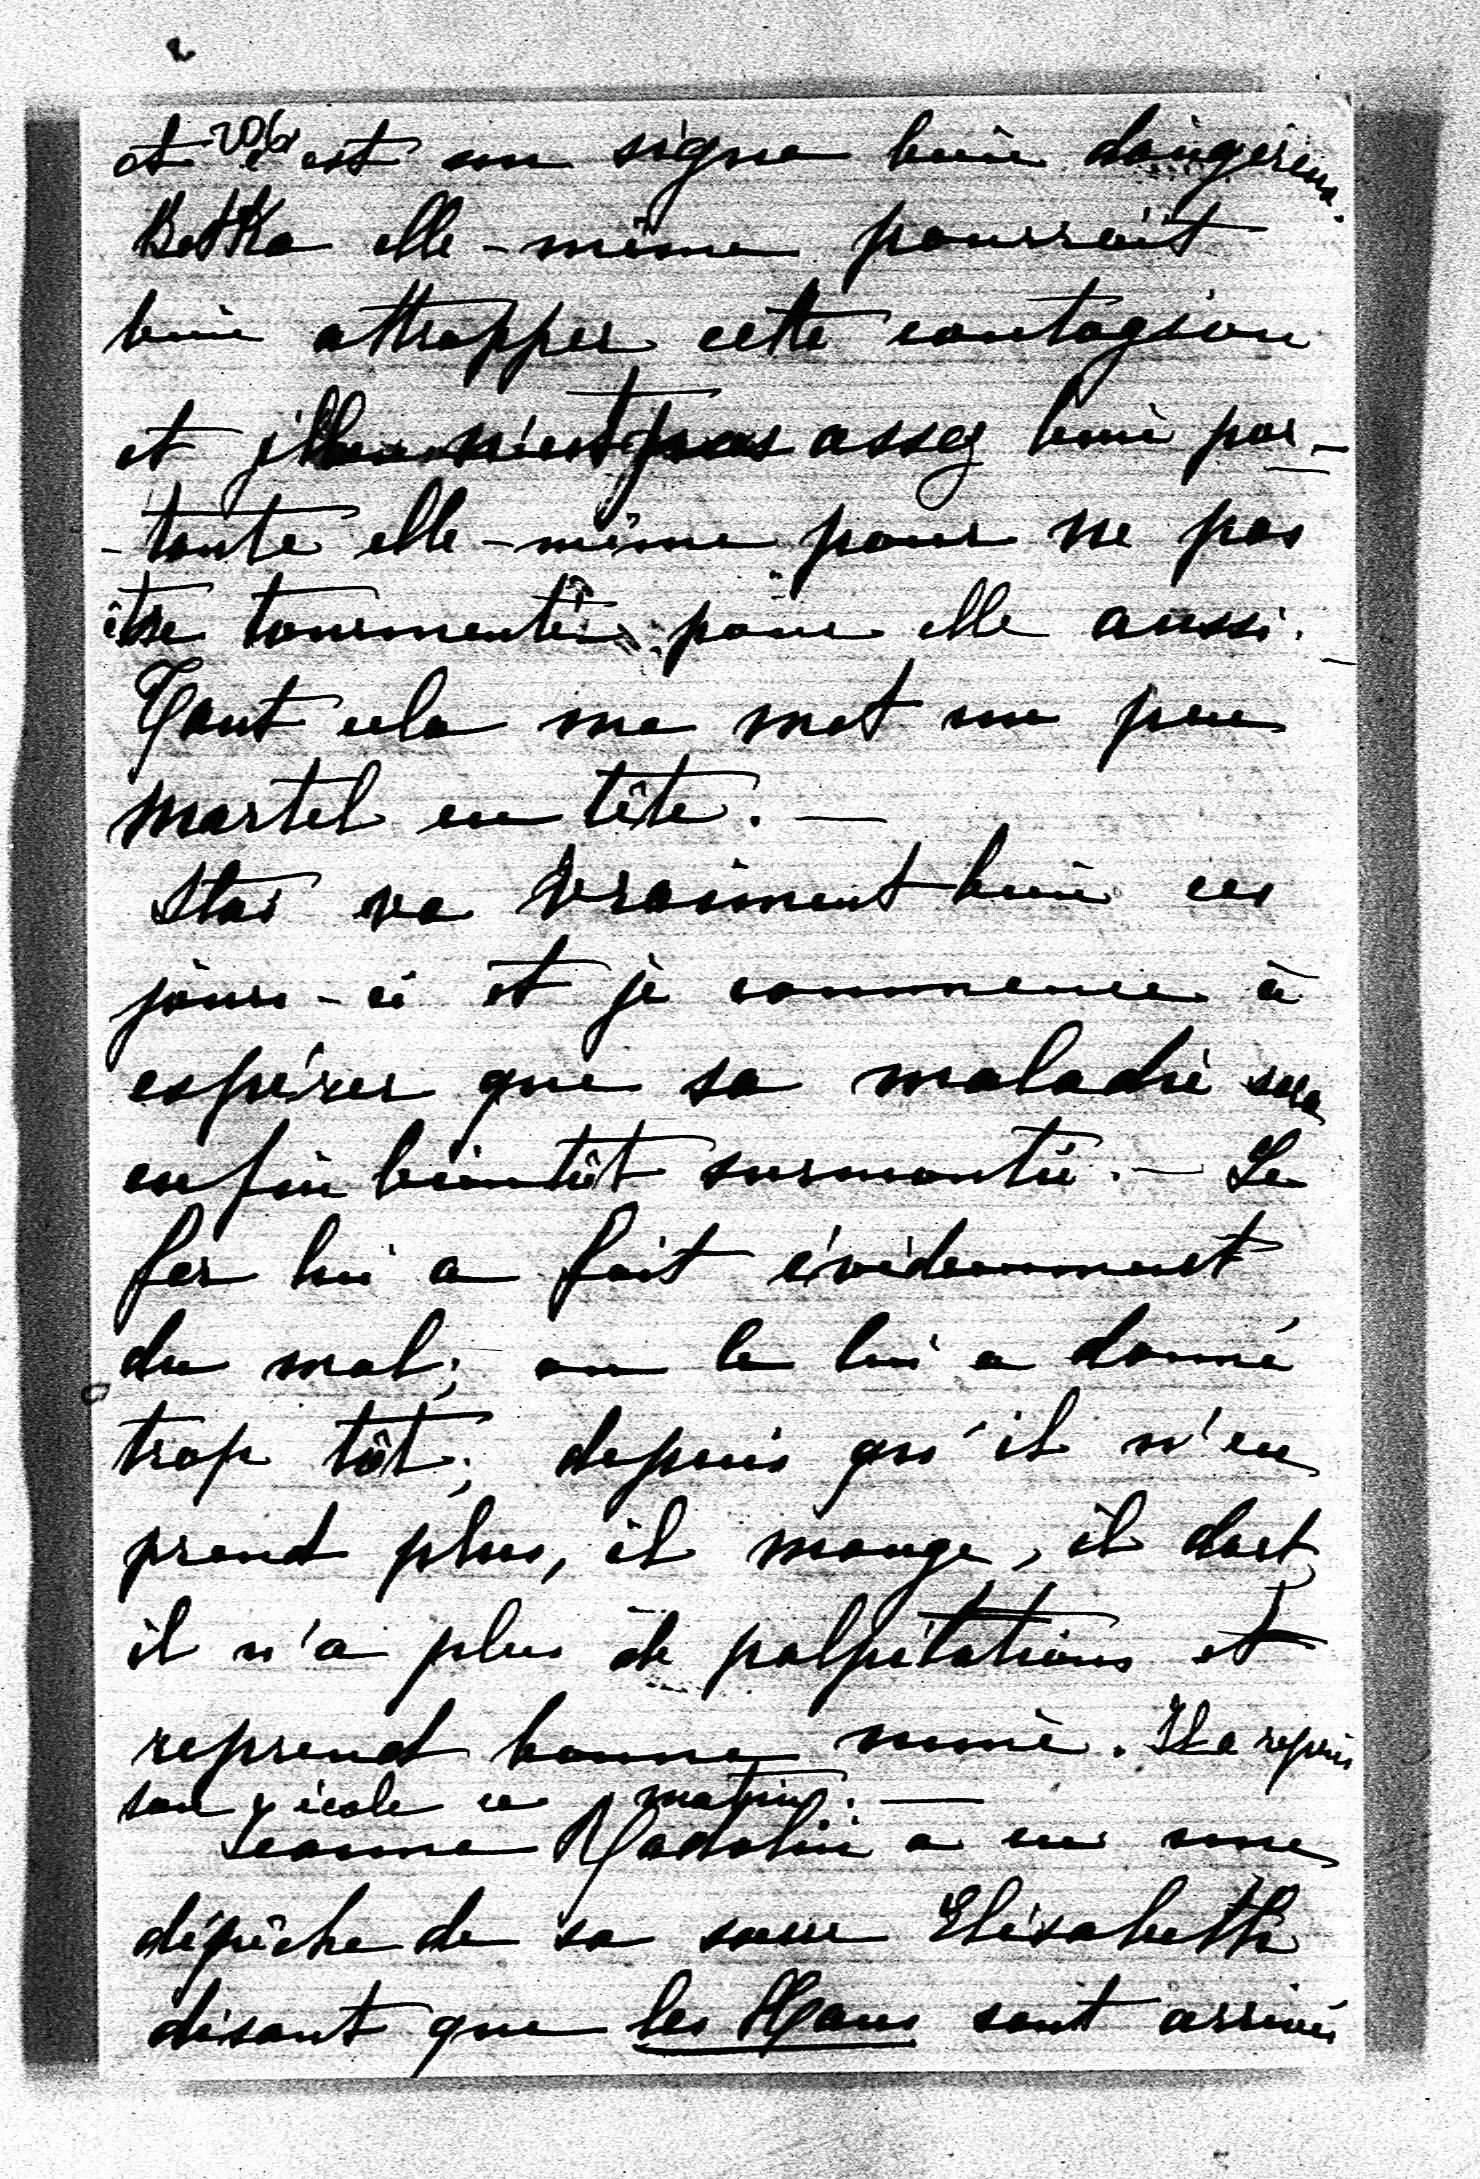 206
et c'est un signe bien dangereux.
Betka elle-même pourrait
bien attrapper cette contagion
et elle n'est pas assez bien por-
-tante elle-même pour ne pas
être tourmentée pour elle aussi.
Tout cela me met un peu
martel en tête. —
Stas va vraiment bien ces
jours-ci et je commence à
espérer que sa maladie sera
enfin bientôt surmontée. — Le
fer lui a fait évidemment
du mal; on le lui a donné
trop tôt; depuis qu'il n'en
prend plus, il mange, il dort,
il n'a plus de palpitations et
reprend bonne mine. Il a repris
son école ce matin. —
Jeanne a eu une
dépêche de sa sœur Elisabeth
disant que les Hans sont arrivés